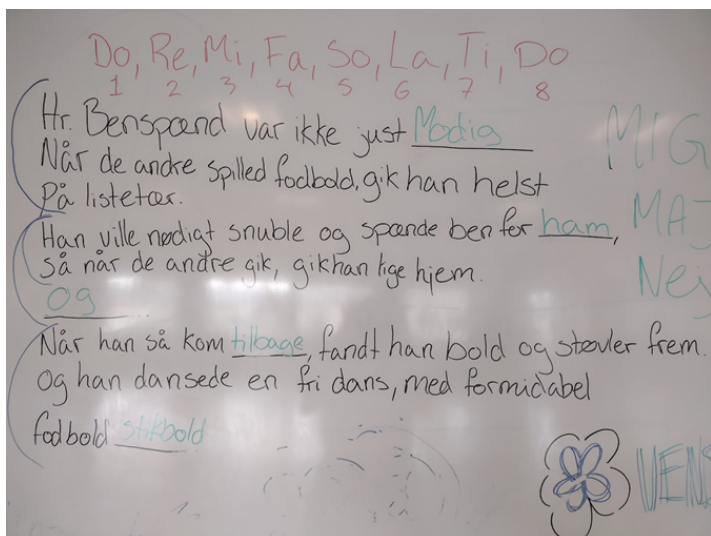 Do, Re, Mi, Fa, So, La, Ti, Do
1 2 3 4 5 6 7 8
Hr. Benspænd var ikke just Modig
Når de andre spilled fodbold, gik han helst
På listetæer.
Han ville nødigt snuble og spænde ben for ham,
så når de andre gik, gik han lige hjem.
Og
Når han så kom tilbage, fandt han bold og støvler frem.
Og han dansede en fri dans, med formidabel
fodbold stikbold
MIG
MAJ
Nej
VENS